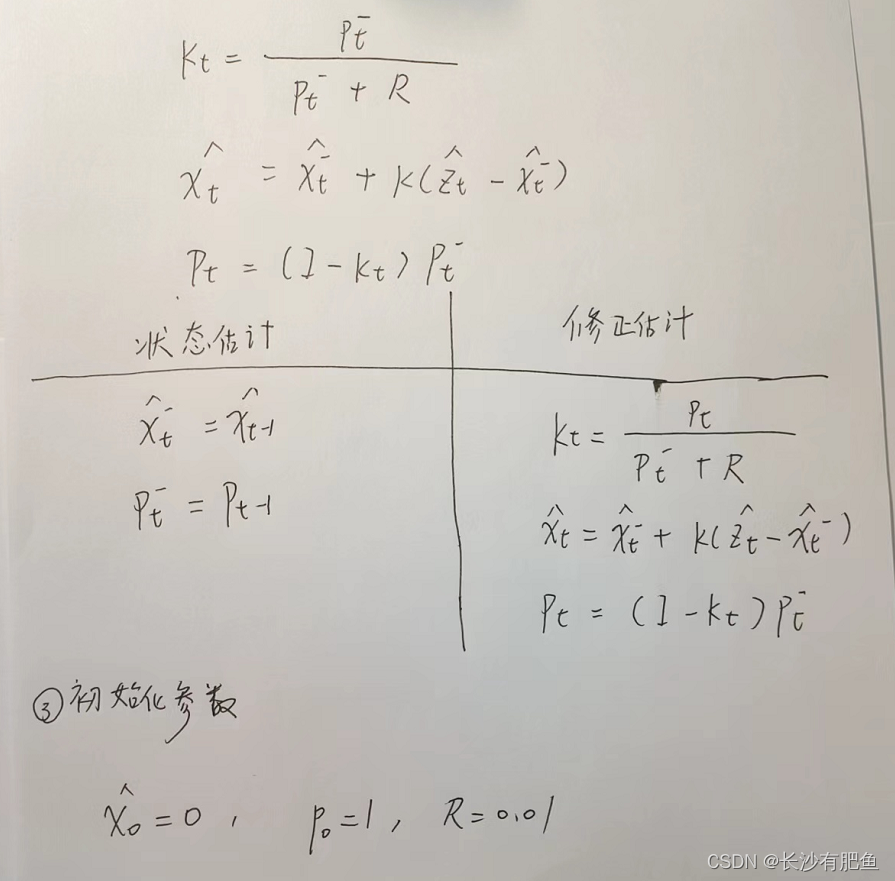 Kt = Pt⁻ / (Pt⁻ + R)
x̂t = x̂t⁻ + K(ẑt - x̂t⁻)
Pt = (I - Kt) Pt⁻
状态估计
x̂t⁻ = x̂t-1
Pt⁻ = Pt-1
修正估计
Kt = Pt / (Pt⁻ + R)
x̂t = x̂t⁻ + K(ẑt - x̂t⁻)
Pt = (I - Kt) Pt⁻
③初始化参数
x̂0 = 0 , P0 = 1 , R = 0.01
CSDN @长沙有肥鱼